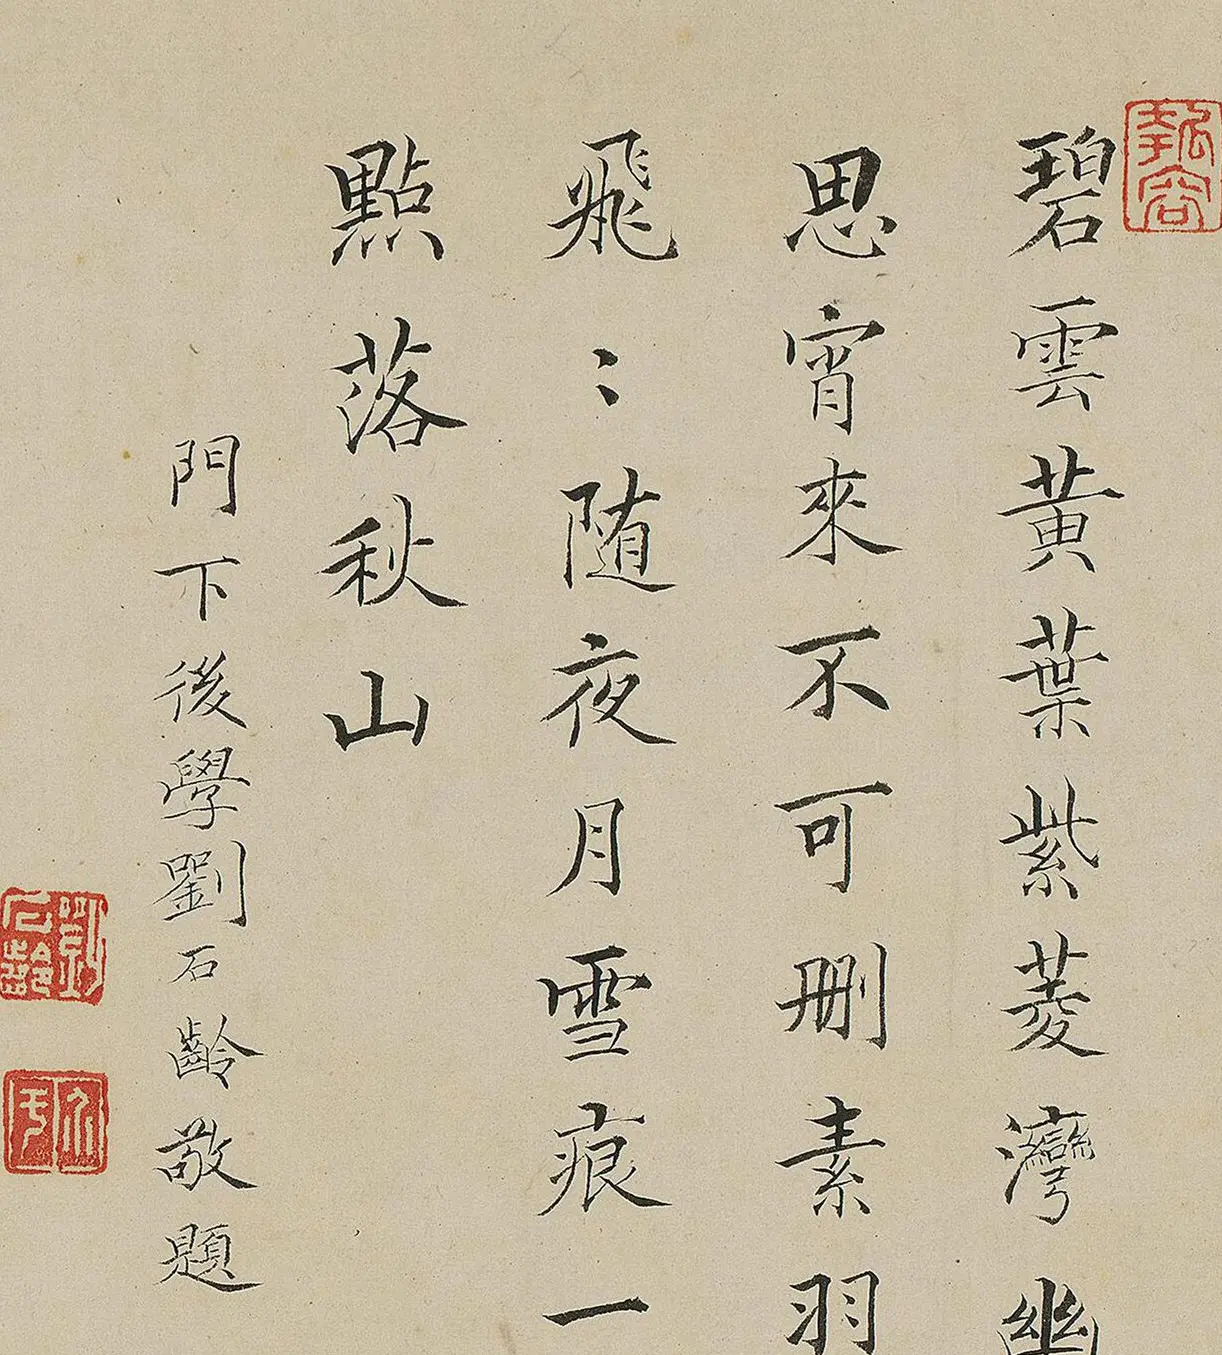 碧雲黃葉紫菱灣幽
思宵來不可刪素羽
飛〻随夜月雪痕一
點落秋山
門下後學劉石齡敬題
劉石齡